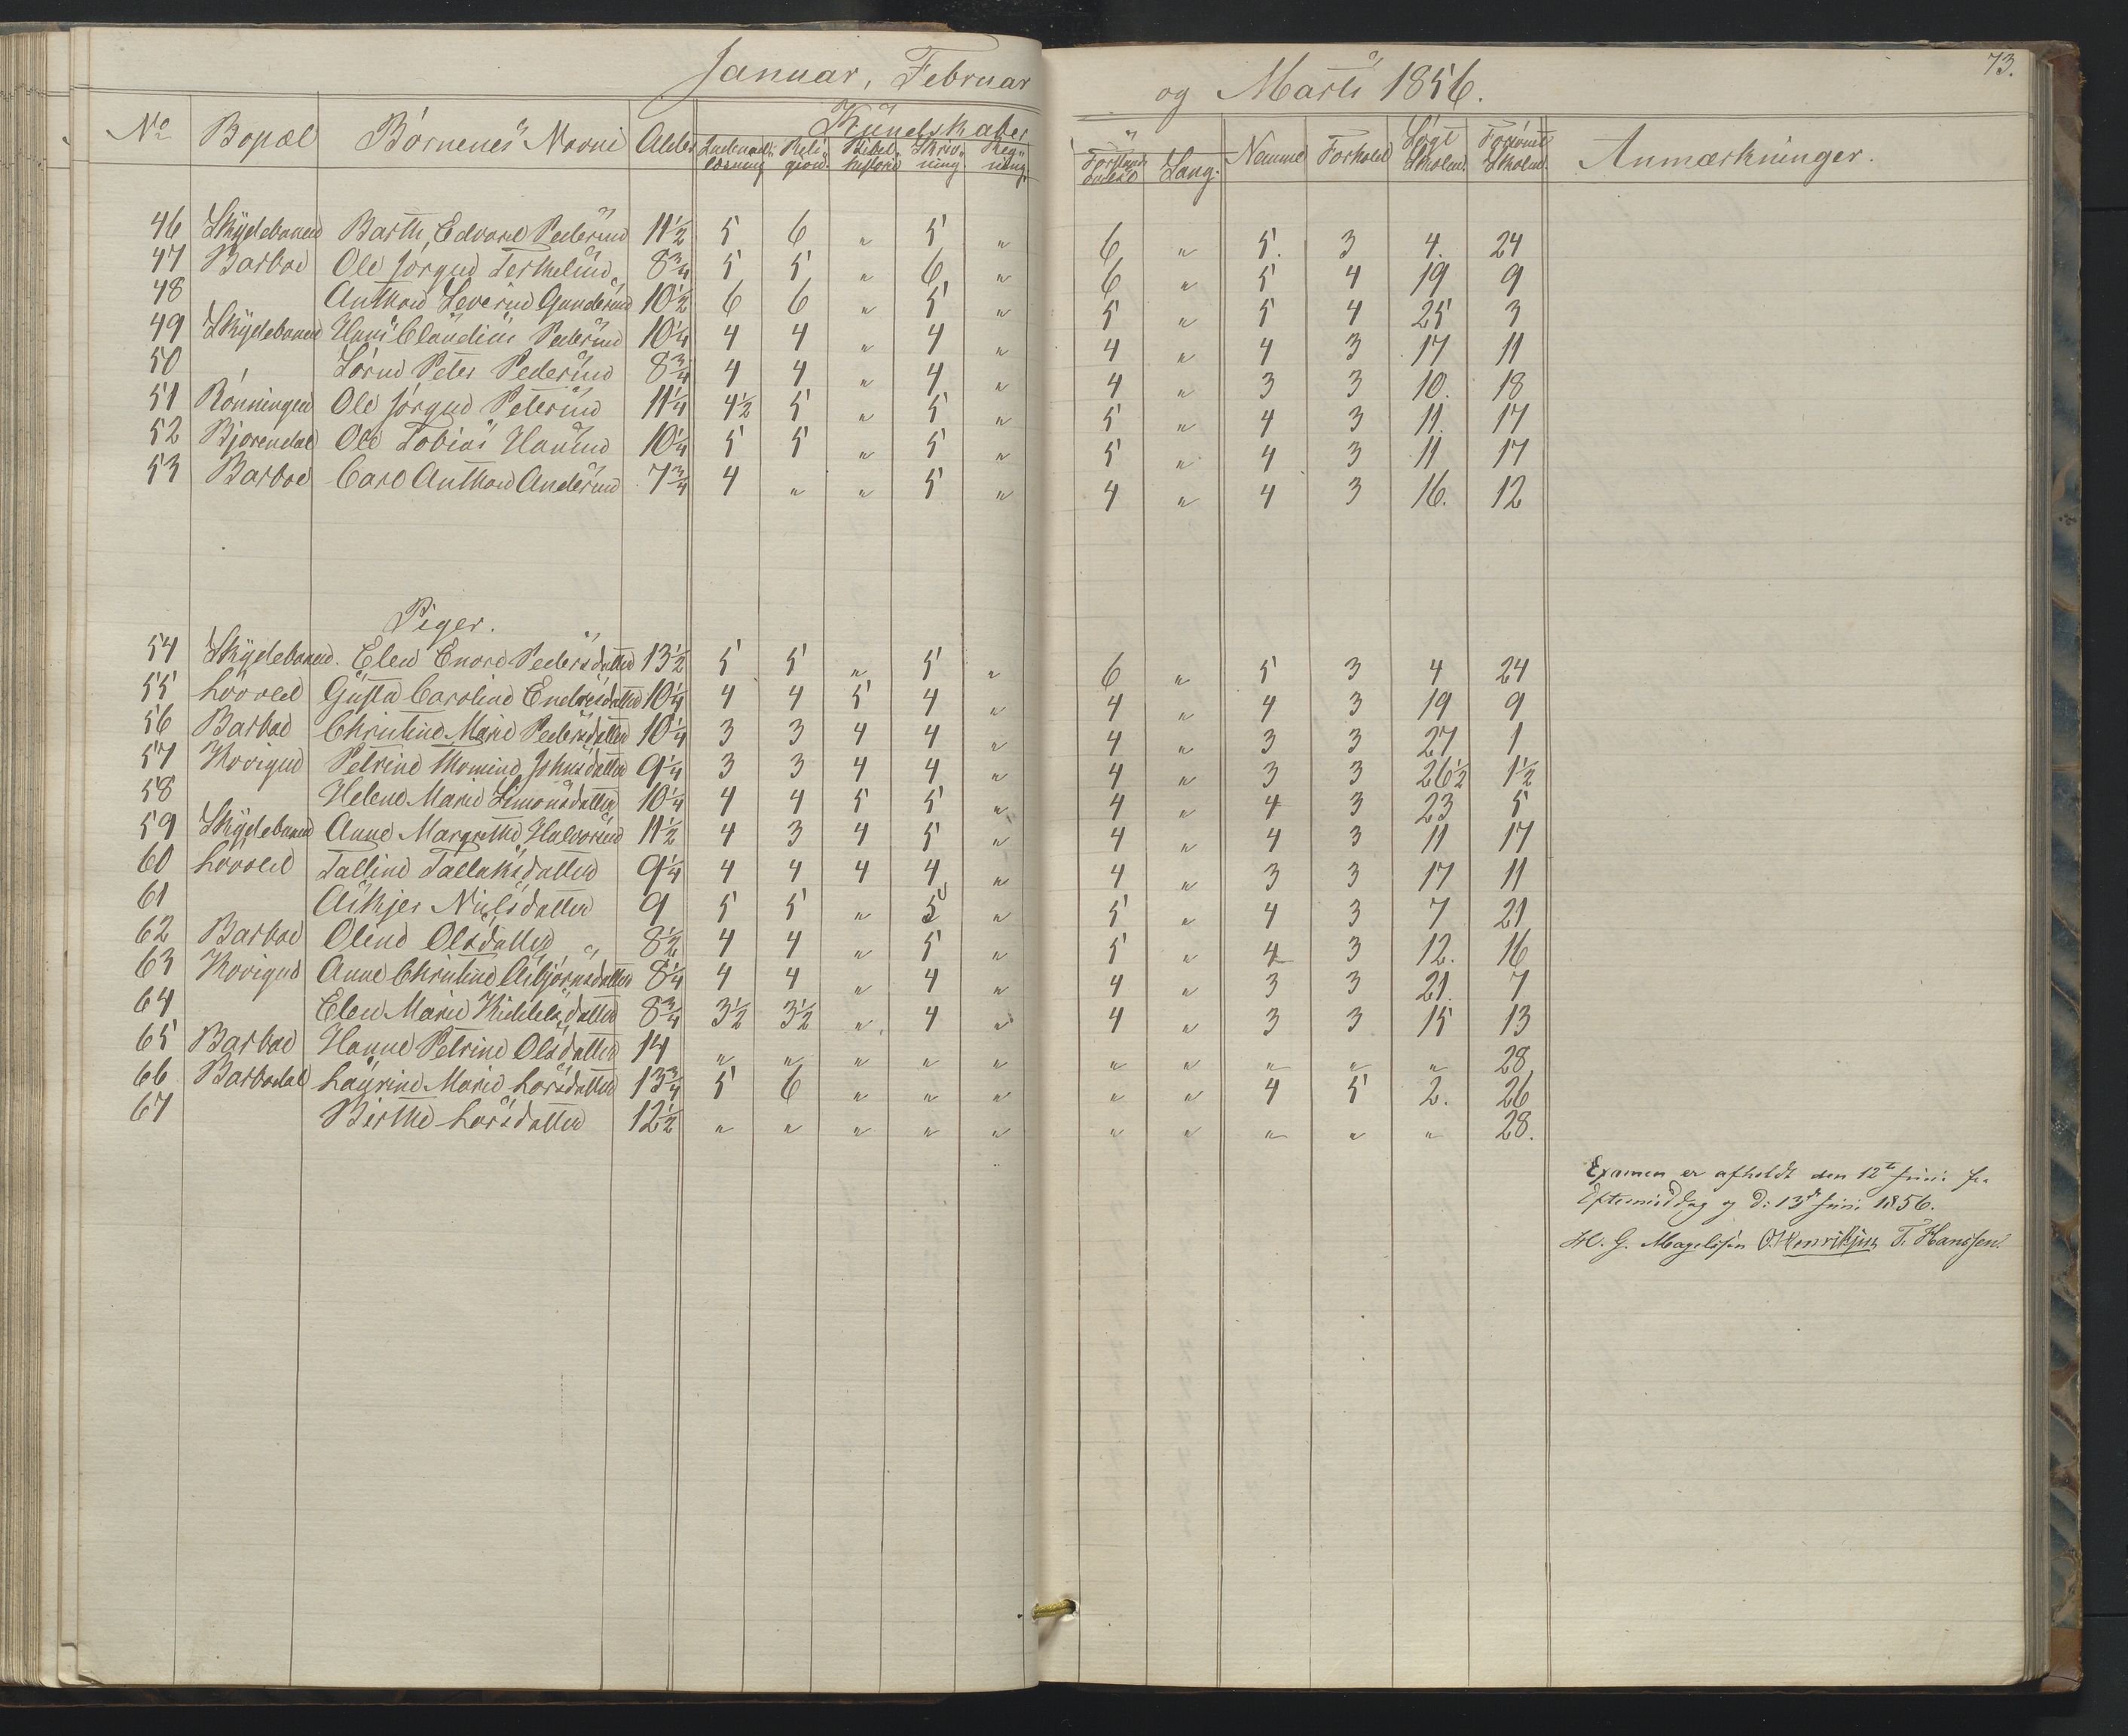 Januar, Februar og Marts 1856.
73.
No Bopæl Børnenes Navne Alder Kundskaber
Indenadslæsning Religion Bibelhistorie Skrivning Regning Forstandsøvelse Sang. Nemme Forhold Søgt Skolen. Forsømt Skolen. Anmærkninger.
46 Skydebanen Barth, Edvard Pedersen 11½ 5 6 " 5 " 6 " 5. 3 4. 24
47 Barboe Ole Jørgen Terkelsen 8¾ 5 5 " 6 " 6 " 5 4 19 9
48 Anthon Severin Gundersen 10½ 6 6 " 5 " 5 " 5 4 25 3
49 Skydebanen Hans Claudius Pedersen 10¼ 4 4 " 4 " 4 " 4 3 17 11
50 Sørne Peter Pedersen 8¾ 4 4 " 4 " 4 " 3 3 10. 18
51 Rønningen Ole Jørgen Petersen 11¼ 4½ 5 " 5 " 5 " 4 3 11. 17
52 Bjorendal Ole Tobias Hansen 10¼ 5 5 " 5 " 5 " 4 3 11 17
53 Barboe Carl Anthon Andersen 7¾ 4 " " 5 " 4 " 4 3 16. 12
Piger.
54 Skydebanen. Elen Enore Pedersdatter 13½ 5 5 " 5 " 6 " 5 3 4 24
55 Gusta Caroline Endresdatter 10¼ 4 4 5 4 " 4 " 4 3 19 9
56 Barboe Christine Marie Pedersdatter 10¼ 3 3 4 4 " 4 " 3 3 27 1
57 Kovigen Petrine Thomine Johnsdatter 9¼ 3 3 4 4 " 4 " 3 3 26½ 1½
58 Helene Marie Simonsdatter 10¼ 4 4 5 5 " 4 " 4 3 23 5
59 Skydebanen Anne Margrethe Halvorsen 11½ 4 3 4 5 " 4 " 4 3 11 17
60 Talline Tallaksdatter 9¼ 4 4 4 4 " 4 " 3 3 17 11
61 Askjer Nielsdatter 9 5 5 " 5 " 5 " 4 3 7 21
62 Barboe Oline Olsdatter 8½ 4 4 " 5 " 5 " 4 3 12. 16
63 Kovigen Anne Christine Asbjørnsdatter 8¼ 4 4 " 4 " 4 " 3 3 21. 7
64 Elen Marie Kittelsdatter 8¾ 3½ 3½ " 4 " 4 " 3 3 15 13
65 Barboe Hanne Petrine Olsdatter 14 " " " " " " " " " " 28
66 Barbodal Laurine Marie Larsdatter 13¾ 5 6 " " " " " 4 5 2. 26
67 Birthe Larsdatter 12½ " " " " " " " " " " 28.
Examen er afholdt den 12te Juni
Eftermiddag og d: 13de Juni 1856.
H. G. Magelssen O. Henriksen T. Hanssen.